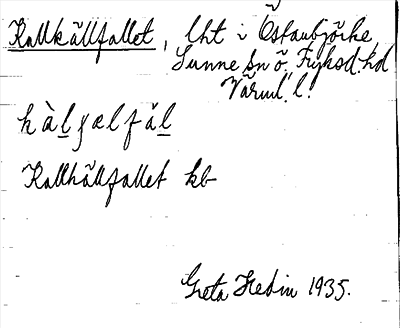 Kallkällfallet, lht i Östanbjörke
Sunne sn Ö. Fryksd. hd
Värml. l.
Kallkällfallet kb
Greta Hedin 1935.